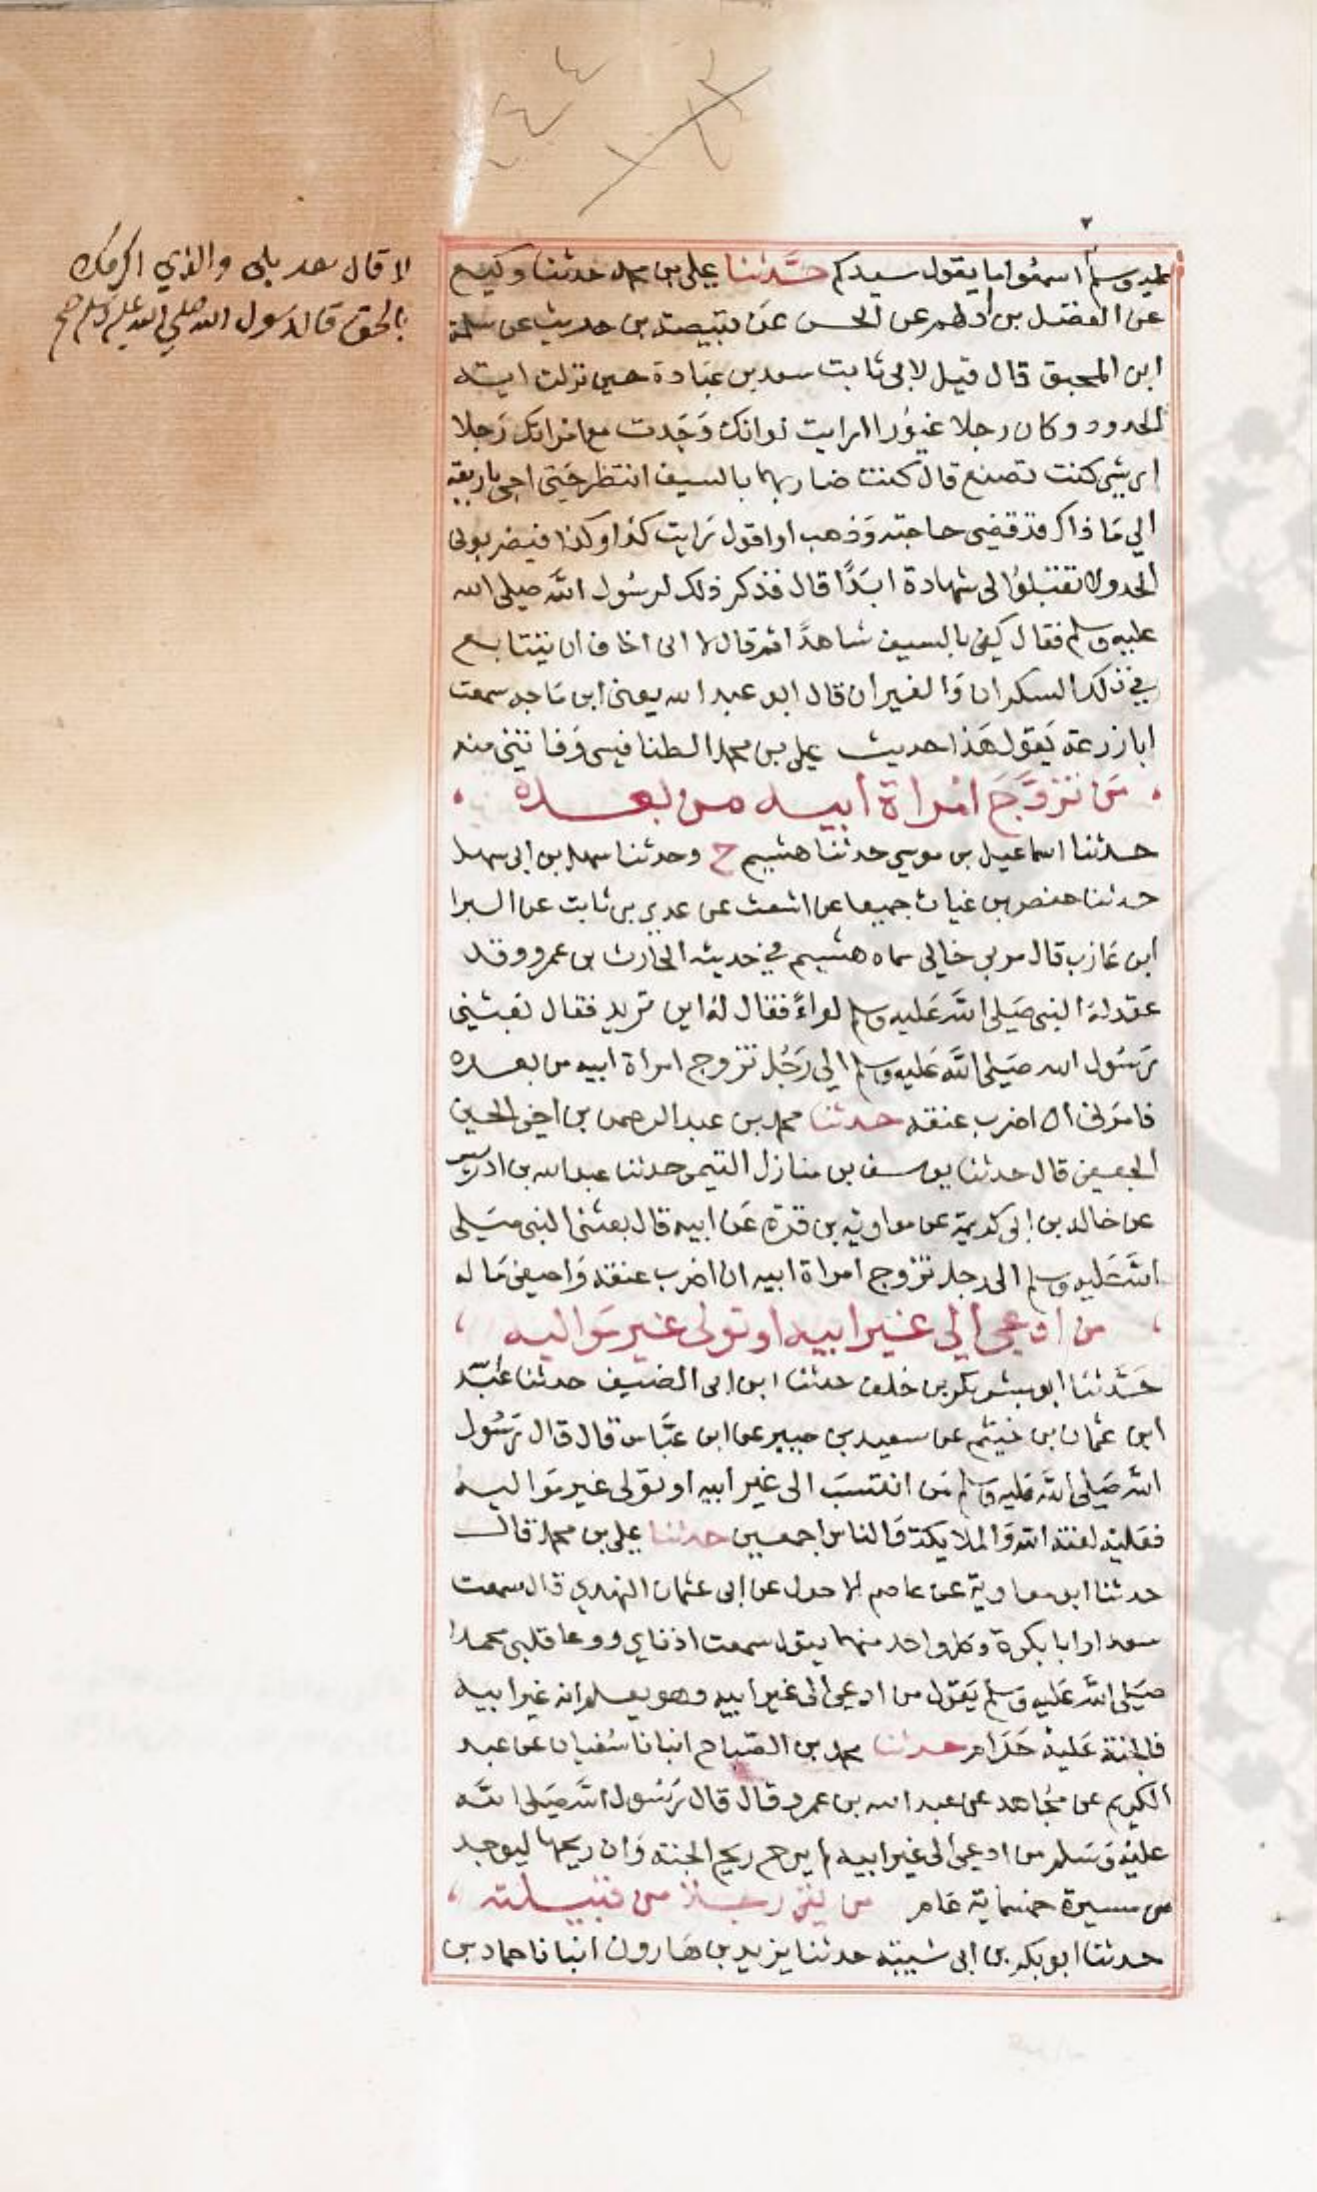 لا قال سعد بلى والذي اكرمك
بالحق قال رسول الله صلى الله عليه وسلم صح
عليه وسلم اسمعوا ما يقول سيدكم حدثنا علي بن محمد حدثنا وكيع
عن الفضل بن دلهم عن الحسن عن قبيصة بن حريث عن سلمة
ابن المحبق قال قيل لابي ثابت سعد بن عبادة حين نزلت اية
الحدود وكان رجلا غيورا ارايت لو انك وجدت مع امراتك رجلا
اي شي كنت تصنع قال كنت ضاربهما بالسيف انتظر حتى اجي باربعة
الي ما ذاك قد قضى حاجته وذهب او اقول رايت كذا وكذا فيضربوني
الحد ولا تقبلوا لي شهادة ابدا قال فذكر ذلك لرسول الله صلى الله
عليه وسلم فقال كفى بالسيف شاهدا ثم قال لا اني اخاف ان يتتابع
في ذلك السكران والغيران قال ابو عبد الله يعني ابن ماجه سمعت
ابا زرعة يقول هذا حديث علي بن محمد الطنافسي وفاتني منه
من تزوج امراة ابيه من بعده
حدثنا اسماعيل بن موسي حدثنا هشيم ح وحدثنا سهل بن ابي سهل
حدثنا حفص بن غياث جميعا عن اشعث عن عدي بن ثابت عن البرا
ابن عازب قال مر بي خالي سماه هشيم في حديثه الحارث بن عمرو وقد
عقد له النبي صلى الله عليه وسلم لواء فقال له اين تريد فقال بعثني
رسول الله صلى الله عليه وسلم الي رجل تزوج امراة ابيه من بعده
فامرني ان اضرب عنقه حدثنا محمد بن عبد الرحمن بن اخي الحسين
الجعفي قال حدثنا يوسف بن منازل التيمي حدثنا عبد الله بن ادريس
عن خالد بن ابي كريمة عن معاوية بن قرة عن ابيه قال بعثني النبي صلى
الله عليه وسلم الى رجل تزوج امراة ابيه ان اضرب عنقه واصفي ماله
من ادعى الي غير ابيه او تولى غير مواليه
حدثنا ابو بشر بكر بن خلف حدثنا ابن ابي الضيف حدثنا عبد الله
ابن عثمان بن خيثم عن سعيد بن جبير عن ابن عباس قال قال رسول
الله صلى الله عليه وسلم من انتسب الى غير ابيه او تولى غير مواليه
فعليه لعنة الله والملايكة والناس اجمعين حدثنا علي بن محمد قال
حدثنا ابو معاوية عن عاصم الاحول عن ابي عثمان النهدي قال سمعت
سعدا وابا بكرة وكل واحد منهما يقول سمعت اذناي ووعا قلبي محمدا
صلى الله عليه وسلم يقول من ادعى الى غير ابيه وهو يعلم انه غير ابيه
فالجنة عليه حرام حدثنا محمد بن الصباح انبانا سفيان عن عبد
الكريم عن مجاهد عن عبد الله بن عمرو قال قال رسول الله صلى الله
عليه وسلم من ادعى الى غير ابيه لم يرح ريح الجنة وان ريحها ليوجد
من مسيرة خمسماية عام من نفى رجلا من قبيلته
حدثنا ابو بكر بن ابي شيبة حدثنا يزيد بن هارون انبانا حماد بن